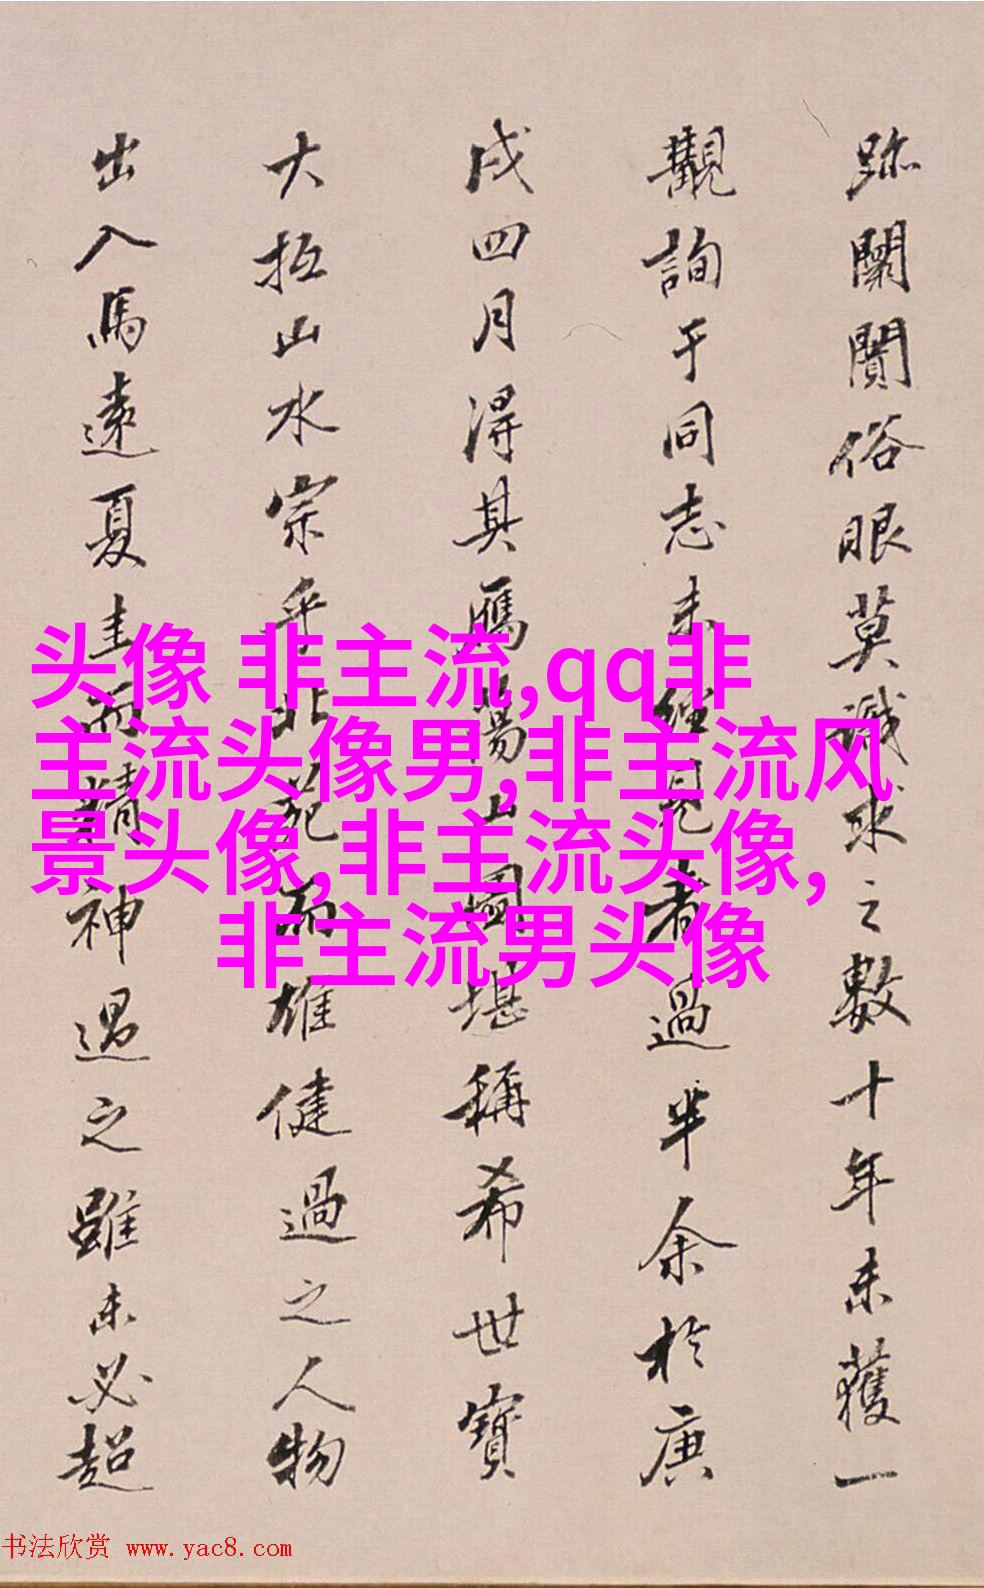 跡闤闠俗眼莫識求之數十年未獲一
觀詢于同志未經見者過半余於庚
戌四月得其鴈蕩山圖堪稱希世寶
大抵山水宗乎北苑而雄健過之人物
出入馬遠夏圭而精神過之雖未必超
头像 非主流,qq非
主流头像男,非主流风
景头像,非主流头像,
非主流男头像
书法欣赏 www.yac8.com